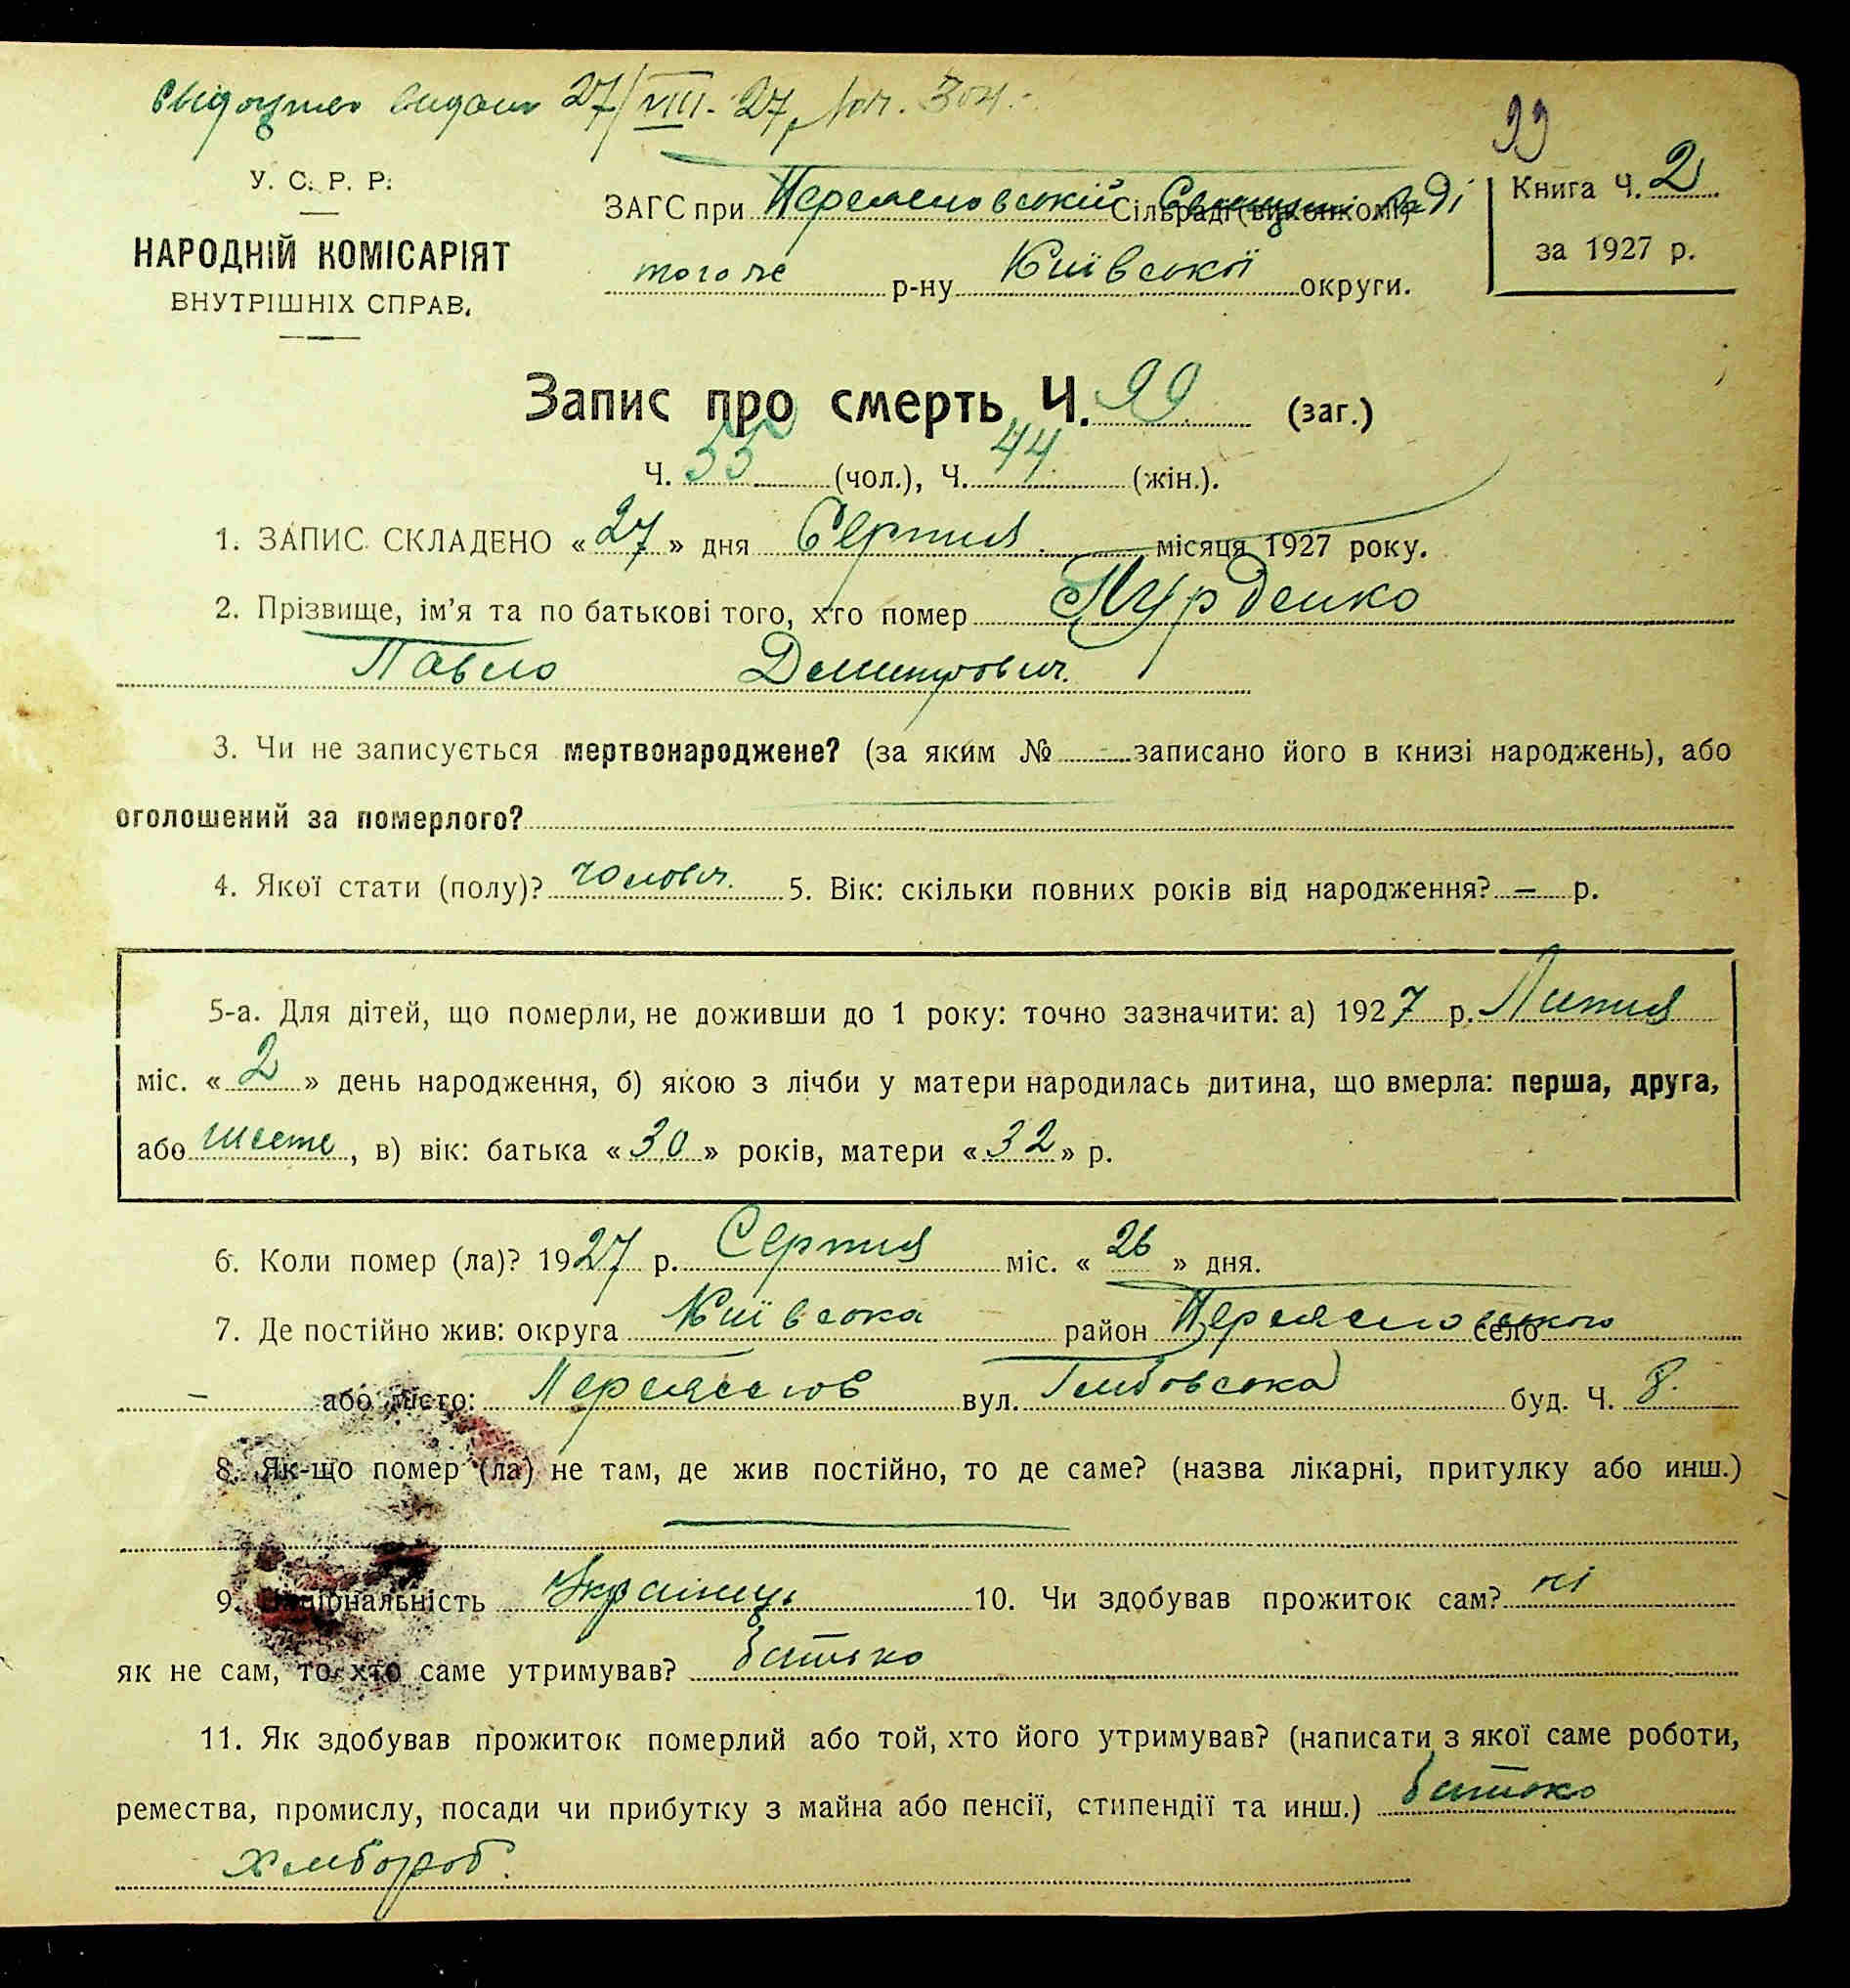 видано 27/VIII-27
99
У. С. Р. Р.
НАРОДНІЙ КОМІСАРІЯТ
ВНУТРІШНІХ СПРАВ.
ЗАГС при Переяславській Сільраді (виконкомі) Раді
того ж р-ну Київської округи.
Книга Ч. 2
за 1927 р.
Запис про смерть Ч. 99 (заг.)
Ч. 55 (чол.), Ч. 44 (жін.).
1. ЗАПИС СКЛАДЕНО «27» дня Серпня місяця 1927 року.
2. Прізвище, ім’я та по батькові того, хто помер
Павло Демитрович.
3. Чи не записується мертвонароджене? (за яким № - записано його в книзі народжень), або
оголошений за померлого?
4. Якої стати (полу)? чоловіч. 5. Вік: скільки повних років від народження? — р.
5-а. Для дітей, що померли, не доживши до 1 року: точно зазначити: а) 1927 р. Липня
міс. «2» день народження, б) якою з лічби у матери народилась дитина, що вмерла: перша, друга,
або шосте, в) вік: батька «30» років, матери «32» р.
6. Коли помер (ла)? 1927 р. Серпня міс. «26» дня.
7. Де постійно жив: округа Київська район Переяславського село
— або місто: Переяслов вул. буд. Ч. 8.
8. Як-що помер (ла) не там, де жив постійно, то де саме? (назва лікарні, притулку або инш.)
9. Національність Українець 10. Чи здобував прожиток сам? ні
як не сам, то хто саме утримував? батько
11. Як здобував прожиток померлий або той, хто його утримував? (написати з якої саме роботи,
ремества, промислу, посади чи прибутку з майна або пенсії, стипендії та инш.) батько
хлібороб.